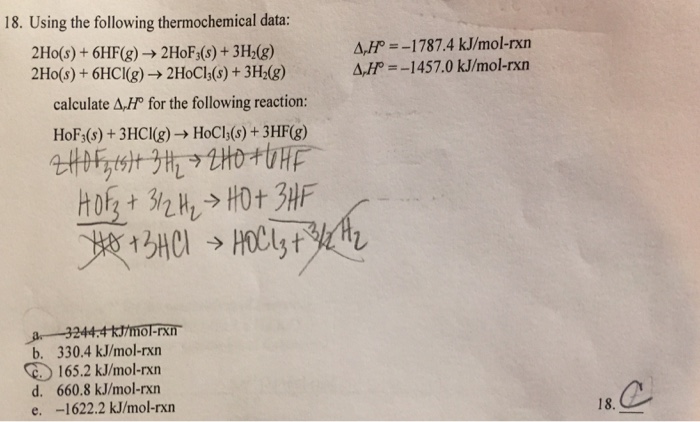 18. Using the following thermochemical data:
2Ho(s) + 6HF(g) → 2HoF₃(s) + 3H₂(g) ΔᵣH° = −1787.4 kJ/mol-rxn
2Ho(s) + 6HCl(g) → 2HoCl₃(s) + 3H₂(g) ΔᵣH° = −1457.0 kJ/mol-rxn
calculate ΔᵣH° for the following reaction:
HoF₃(s) + 3HCl(g) → HoCl₃(s) + 3HF(g)
2HOF₃(s)+ 3H₂ → 2HO + 6HF
HOF₃ + 3/2 H₂ → HO + 3HF
HO + 3HCl → HOCl₃ + 3/2 H₂
a. −3244.4 kJ/mol-rxn
b. 330.4 kJ/mol-rxn
c. 165.2 kJ/mol-rxn
d. 660.8 kJ/mol-rxn
e. −1622.2 kJ/mol-rxn
18. C